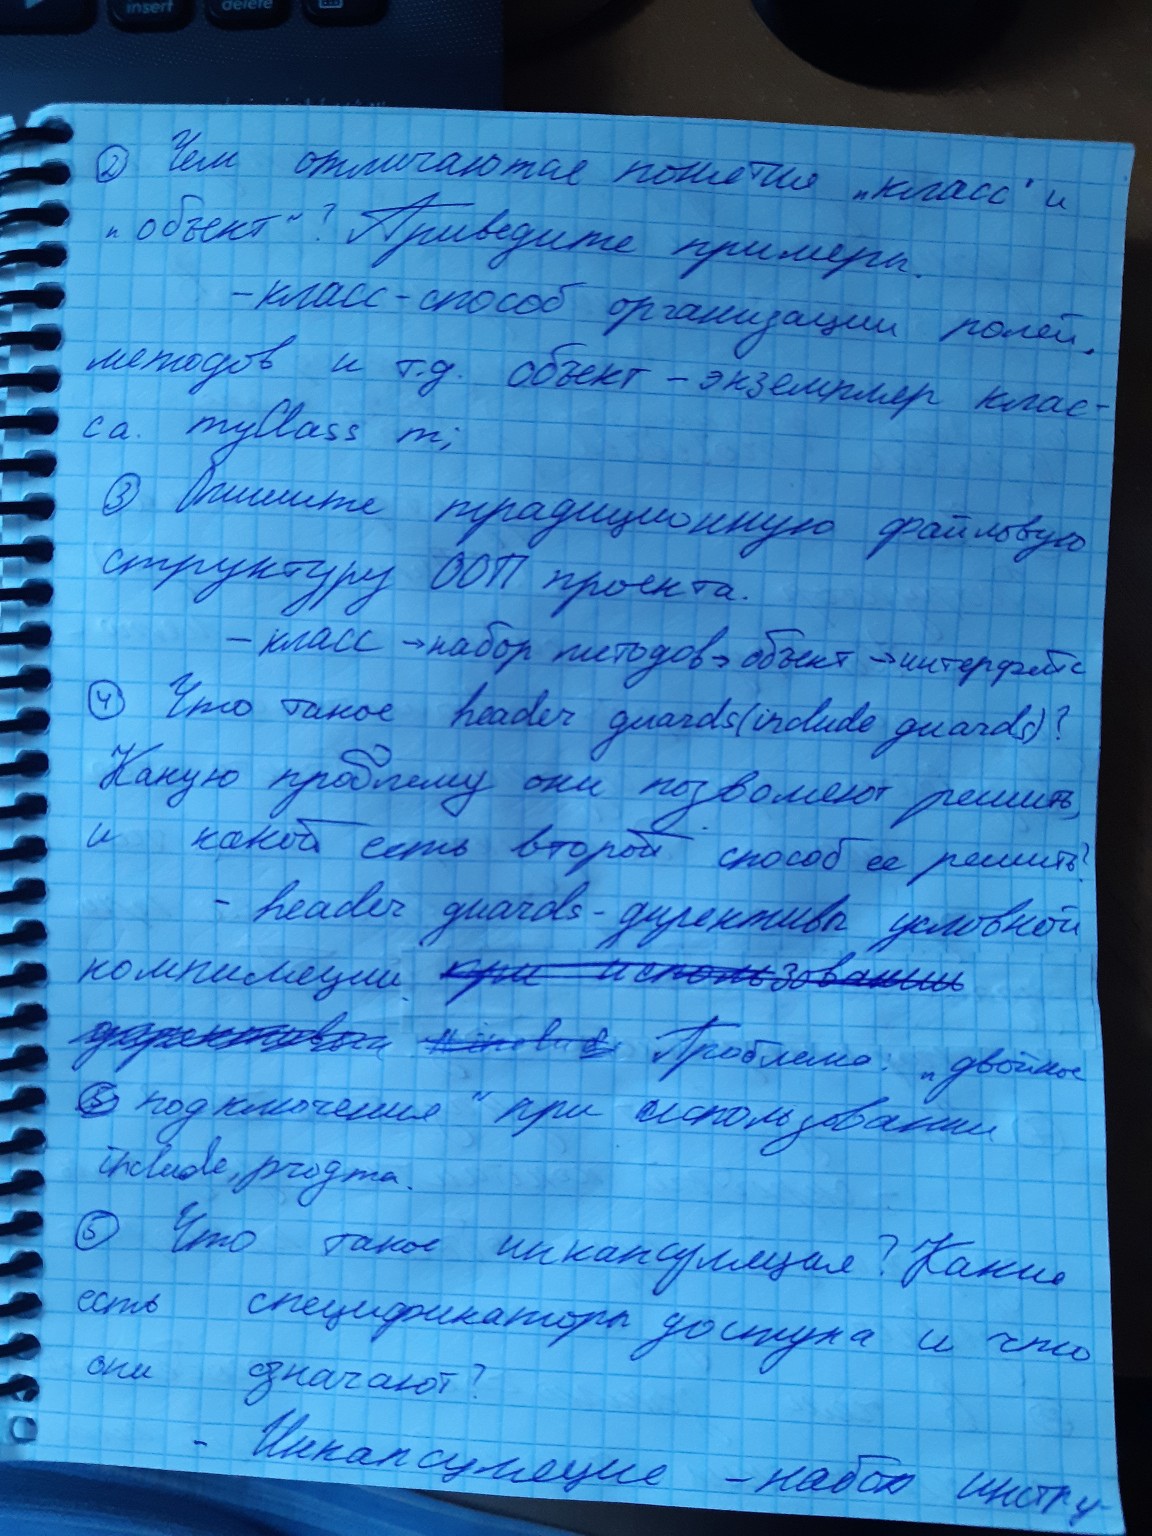 insert
delete
② Чем отличаются понятия „класс" и
„объект"? Приведите примеры.
- класс - способ организации полей,
методов и т.д. объект - экземпляр клас-
са. myClass m;
③ Опишите традиционную файловую
структуру ООП проекта.
- класс → набор методов → объект → интерфейс
④ Что такое header guards (include guards)?
Какую проблему они позволяют решить,
и какой есть второй способ ее решить?
- header guards - директивы условной
компиляции. при использовании
Проблема: „двойное
подключения" при использовании
include, pragma.
⑤ Что такое инкапсуляция? Какие
есть спецификаторы доступа и что
они означают?
- Инкапсуляция - набор инстру-